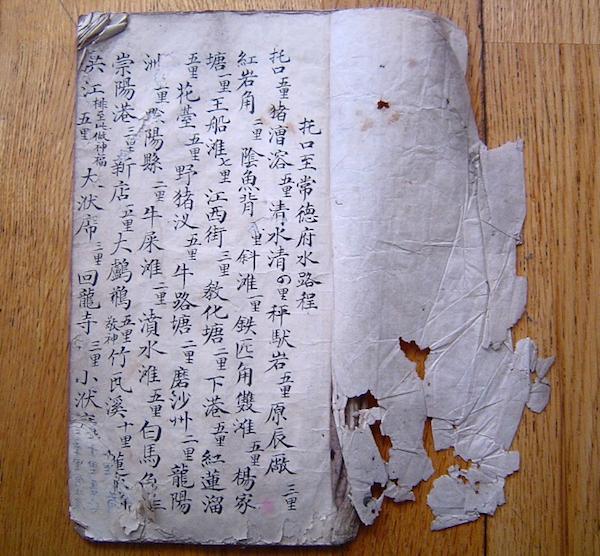 托口至常德府水路程
托口五里猪漕溶五里清水清四里秤䭾岩五里原辰廠三里
紅岩角二里陰魚背一里斜滩一里鉄匹角雙滩五里楊家
塘一里王船滩七里江西街三里教化塘二里下港五里紅蓮溜
五里花堂五里野猪汊五里牛路塘二里磨沙州二里龍陽
洲一里陽縣二里牛屎滩二里濆水滩五里白馬
崇陽港三里新店五里大鸕鶿五里敬神竹瓦溪十里
洪江排至此做神福五里大洑席三里回龍寺三里小洑